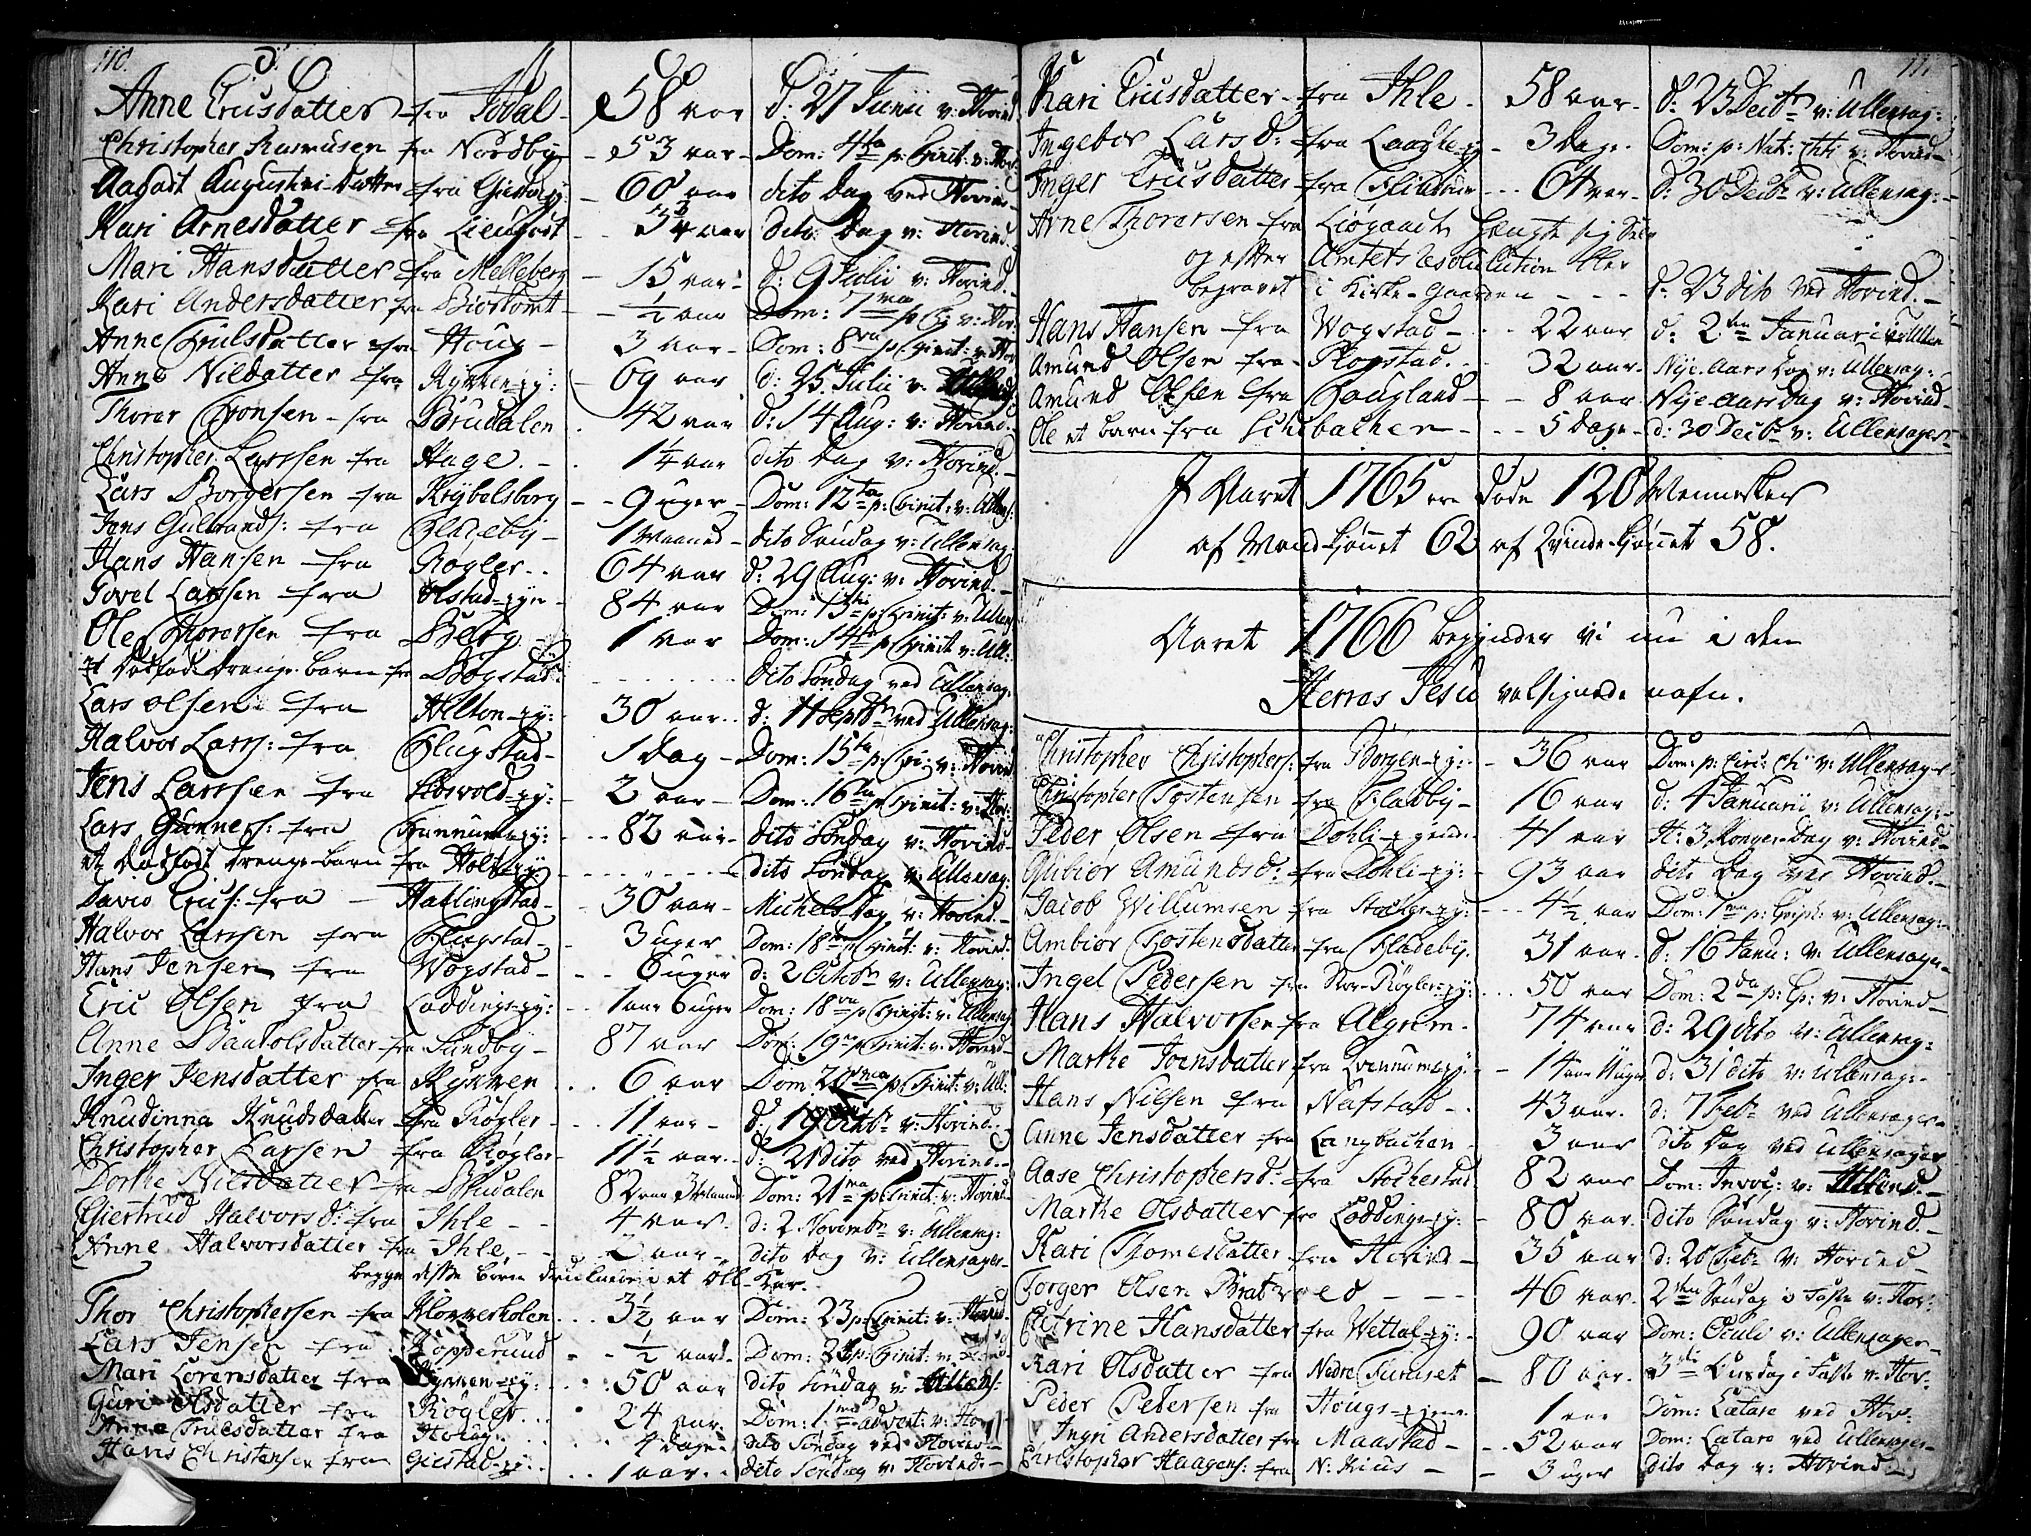 110.
Anne Trusdatter fra Jodal - 58 aar d: 27 Junii v: Hovind
Christopher Rasmusen fra Nordby - 53 aar - Dom: 4ta p: Trinit: v: Hov:
Aagaat Augustini-Datter fra 60 aar dito Dag ved Hovind -
Kari Arnesdatter fra 54 aar dito Dag v: Hovind.
Mari Hansdatter fra Melleberg - 15 aar - d: 9 Julii v: Hovind. -
Kari Andersdatter fra - ½ aar Dom: 7ma p T: v: Hov:
Anne Trulsdatter fra Houg - 3 aar - Dom: 8va p Trinit: v: Hov
Anne Nilsdatter fra Kykken-ey: 69 aar d: 25 Julii v:
Thorer Tronsen - fra Brudalen 42 aar d: 14 Aug: v: Hovind. -
Christopher Larssen fra Hage. - 1¼ aar dito Dag v: Hovind. -
Lars Borgersen fra Krybelsborg - 9 uger - Dom: 12ta p: Trinit: v: Ullens:
Jens Gulbrands: fra Fladeby - 1 Maaned - dito Søndag v: Ullensag:
Hans Hansen fra Røgler. . 64 aar d: 29 Aug: v: Hovind. -
Povel Larssen fra Olstad-eyn - 84 aar Dom: 13tia p: Trinit: v: Ullens:
Ole Thorersen fra Berg - 1 aar Dom: 14ta p Trinit v: Ull:
et Dødfødt Drenge-barn fr Bogstad: dito Søndag ved Ullensag:
Lars Olsen fra Hellton-ey: 30 aar. . d: 11 Septbr ved Ullensag:
Halvor Larss: fra Flugstad - 1 Dag - Dom: 15ta p: Tri: v: Hovind
Jens Larssen fra 2 aar - Dom: 16ta p Trinit: v: Hov:
Lars Gunners: fra - 82 aar - dito Søndag v: Hovind -
et Dødfødt Drenge-barn fra Holb-ey: dito Søndag v: Ullensag:
David Trus: fra - Hablingstad - 30 aar - Michels Dag v: Hovind. -
Halvor Larssen fra Flugstad - 3 uger Dom: 18va p Trinit: v: Hovind.
Hans Jensen fra Wogstad - 6 uger d: 2 Octobr v: Ullensag:
Eric Olsen fra Loddings-ey: 1 aar 6 uger Dom: 18va p Trinit: v: Ullensag
Anne fra Sundby - 87 aar Dom: 19na p Trinit: v: Hovind -
Inger Jensdatter fra Kykken . . 6 aar Dom 20ma p Trinit: v: Ull:
Knudinna Knudsdatter fra Røgler - . . 11 aar - d: 19 Octbr v: Hovind. -
Christopher Larsen fra Røgler - 11½ aar. . d: 21 dito ved Hovind. -
Dorthe Nilsdatter fra Brudalen 82 aar 3 Maaned Dom: 21ma p: Trinit: v: Hovind -
Giertrud Halvorsd: fra Ihle - - 4 aar. d: 2 Novembr v: Ullensag:
Anne Halvorsdatter fra Ihle, - - 2 aar - dito Dag v: Ullensager -
begge disse børn druknede i et Øll-Kar.
Thor Christophersen fra Klokkerholen. 3½ aar Dom: 23 p: Trinit: v: Hovind
Lars Jensen fra Kopperuud - - ½ aar - Dom: 25 p: Trinit: v:
Mari Lorensdatter fra Kykken-ey: 50 aar dito Søndag v: Ullens:
Guri Olsdatter fra Røgler. . . 24 aar. Dom: 1ma Advent: v: Hov:
Anne Trulsdatter fra Houg. 4 Dage. dito Søndag ved Hovind -
Hans Christensen fra Giestad-ey: 1 aar. . dito Søndag v: Hovind. -
111.
Kari Trusdatter - fra Ihle - 58 aar - d: 23 Decbr v: Ullensag:
Ingebor Larsd: fra - 3 Dage. Dom: p: Nat: Chti v: Hovind -
Inger Trusdatter fra - - 64 aar. d: 30 Decbr v: Ullensag: -
Arne Thorersen fra Liøgaadt hengte sig Selv
og efter Amtets Resolution blev
begravet i Kirke-Gaarden - - - d: 23 dito ved Hovind. -
Hans Hansen fra Wogstad - - 22 aar d: 2den Januari v: Ullen
Amund Olsen fra Rogstad. - 32 aar. Nye-Aars Dag v: Ullensag:
Amund Olsen fra Haugland - - 8 aar Nye-Aars Dag v: Hovind -
Ole et barn fra Schibachen - - - 5 Dage - d: 30 Decbr v: Ullensager -
I Aaret 1765 ere Døde 120 Mennesker
af Mand-kiønnet 62 af Qvinde-kiønnet 58.
Aaret 1766 begynder vi nu i den
Herres Jesu velsignede nafn.
Christopher Christophers: fra Børgen-ey: - 36 aar Dom: p: Circ: Chi v: Ullensager.
Christopher Tostensen fra Fladby - 16 aar d: 4 Januarii v: Ullensag: -
Peder Olsen fra Dohli-eyende. 41 aar H: 3 Konger-Dag v: Hovind -
Gubiør Amundsd: fra Dohli-ey: - 93 aar dito Dag ved Hovind. -
Jacob Willumsen fra - - 4½ aar Dom: 1ma p: Epiph: v: Ullensag: -
Ambiør Tostensdatter fra Fladeby. 31 aar. d: 16 Janu: v: Ullensager -
Ingel Pedersen fra Nor-Røgler-ey: 50 aar Dom: 2da p: Ep: v: Hovind -
Hans Halvorsen fra Algrim - 74 aar d: 29 dito v: Ullensag:
Marthe Joensdatter fra - 14 aar 11 uger d: 31 dito v: Ullensag: -
Hans Nilsen fra Nafstad - . 43 aar. d: 7 Febr ved Ullensager -
Anne Jensdatter fra Langbachen - 3 aar dito Dag ved Ullensager
Aase Christophersd: fra 82 aar Dom: Invoc: v: -
Marthe Olsdatter fra Loddings-ey: - 80 aar. dito Søndag v: Hovind. -
Kari Thomesdatter fra Hovind - 35 aar d: 20 Febr v: Hovind -
Torger Olsen Bratvold - - - 46 aar. 2den Søndag i Faste v: Hov:
Catrine Hansdatter fra Wettal-ey: - 90 aar Dom: Oculi v: Ullensager -
Kari Olsdatter fra Nedre Fururset - 80 aar. 3die Tirsdag i Faste v: Hov:
Peder Petersen fra Hougs-eyene 1 aar Dom: Lætare ved Hov:
Ingri Andersdatter fra Maastad - - 52 aar Dom: Lætare ved Ullensager -
Christopher Haagens: fra N: Krius - - 3 uger dito Dag v: Hovind -